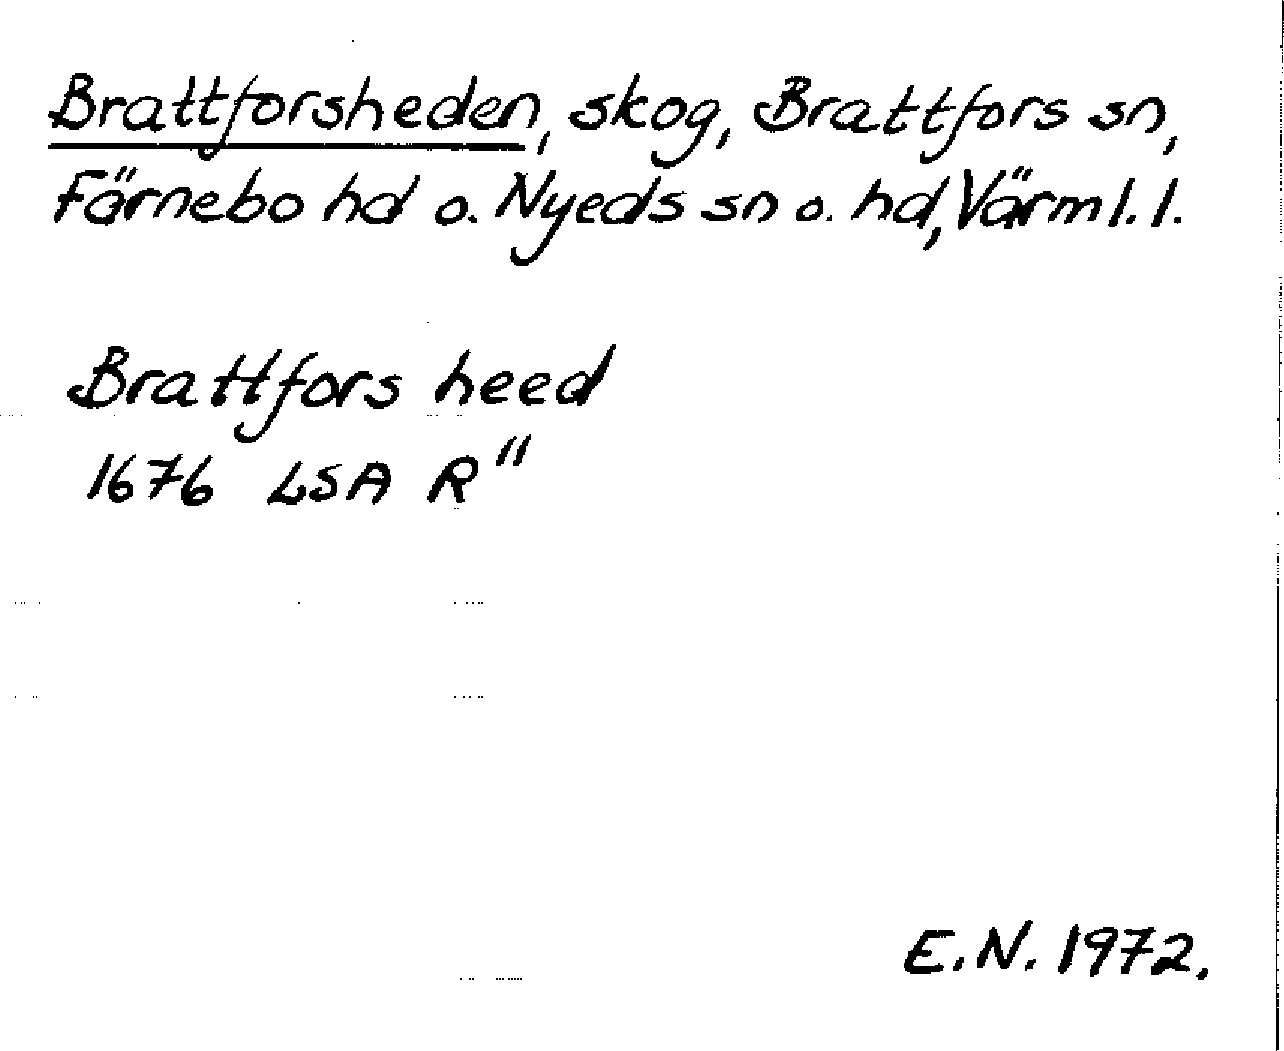 Brattforsheden, skog, Brattfors sn,
Färnebo hd o. Nyeds sn o. hd, Värml. l.
Brattfors heed
1676 LSA R"
E.N. 1972.